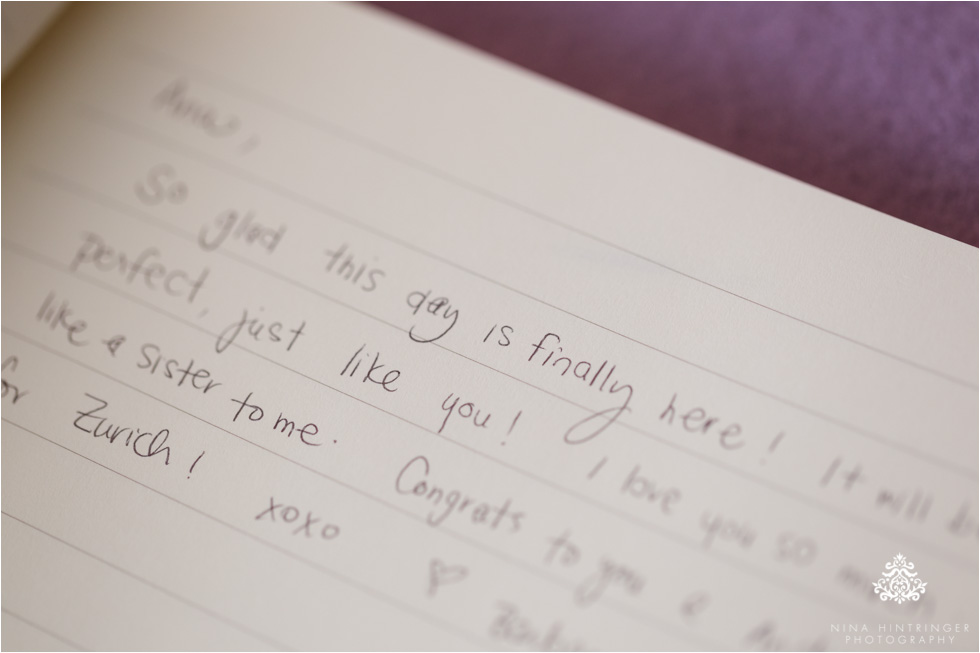 So glad this day is finally here! It will
perfect, just like you! I love you so
like a sister to me. Congrats to you &
for Zurich! xoxo
NINA HINTRINGER
PHOTOGRAPHY